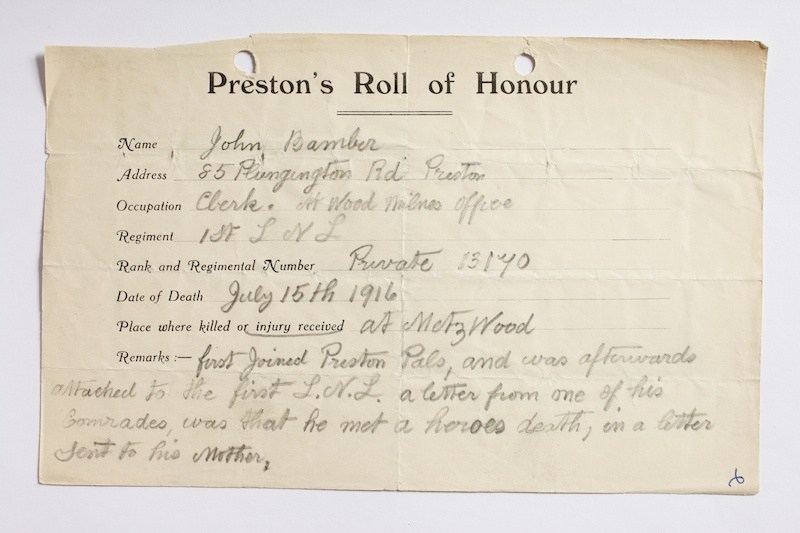 Preston's Roll of Honour
Name John Bamber
Address 85 Plungington Rd Preston
Occupation Clerk. At Wood Milnes Office
Regiment 1st L N L
Rank and Regimental Number Private 13170
Date of Death July 15th 1916
Place where killed or injury received at Metz Wood
Remarks:— first Joined Preston Pals, and was afterwards
attached to the first L.N.L. a letter from one of his
Comrades, was that he met a heroes death, in a letter
sent to his Mother,